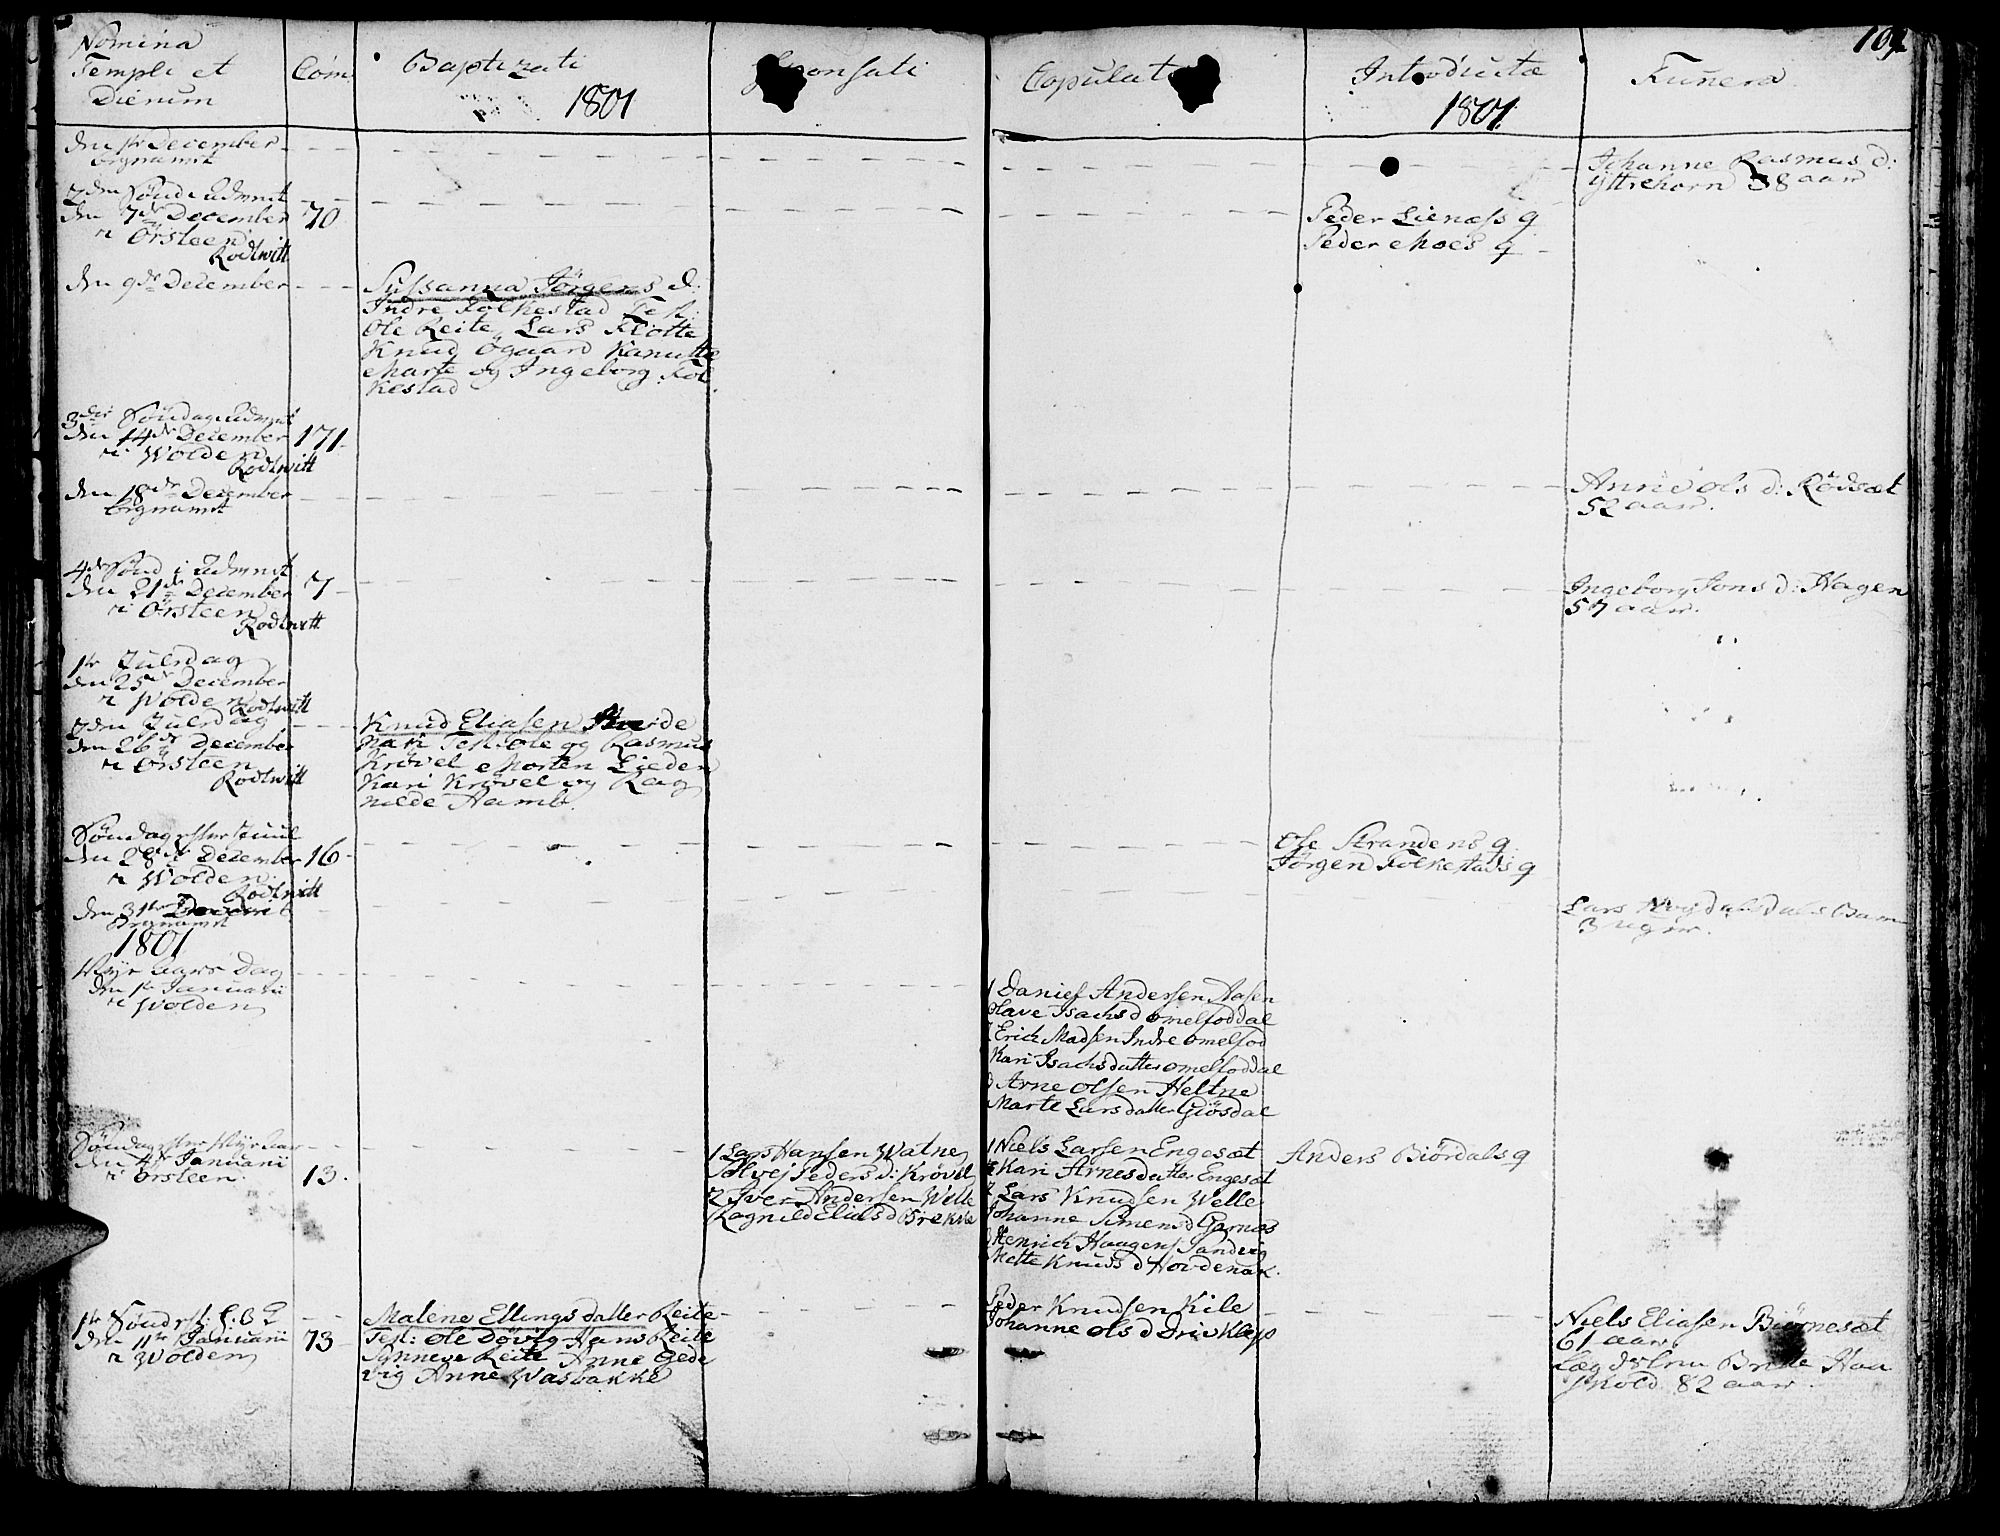 109
Nomina
Templi et
Dierum
Com.
Baptizati
1801
Sponsati
Copulati
Introductæ
1801.
Funera
den 1te December
Johanne Rasmus d:
Yttrehorn 38 aar
2den Sönd: i Admnt
den 7de December 70
i Örsteen
Rodtwitt
Peder Lienæss q
Peder Moes q
den 9de December
Sussanna Jörgens d:
Indre Folkestad Test:
Ole Reite, Lars Flotte
Knud Ögaard Kanutte
Marte og Ingeborg Fol
kestad
3die Söndag i Admnt
den 14de December 171
i Wolden
Rodtwitt
den 18de December
Anne Ols d: Rödsæt
52 aar.
4de Sönd i Admnt
den 21de December 7
i Örsteen
Rodtwitt
Ingeborg Jons d: Hagen
57 aar.
1te Juledag
den 25de December
i Wolden
Rodtwitt
2den Juledag
den 26de December
i Örsteen
Rodtwitt
Knud Eliasen
Test: Ole og Rasmus
Krövel Morten Lieden
Kari Krövel og Rag
nilde Aamb.
Söndag efter Juul
den 28de December 16
i Wolden
Rodtwitt
Ole Strandens q.
Jörgen Folkestads q
den 31te
Lars
3 uger.
1801
Nyt Aars Dag
den 1te Januarii
i Wolden
1 Daniel Andersen Aasen
Olave Isachs d Omelfoddal
2 Erich Madsen Indre Omelfod
Kari Isachsdatter Omelfoddal
3 Arne Olsen Heltne
Marte Larsdatter Giösdal
Söndag efter Nyt Aar
den 4de Januarii
i Örsteen 13.
1 Lars Hansen Watne
Solvej Peders d: Krövel
2 Iver Andersen Welle
Ragnild Elias d Brekke
1 Niels Larsen Engesæt
Kari Arnesdatter Engesæt
2 Lars Knudsen Welle
Johanne Simens d Garnæs
3 Henrich Haagens Sandvig
Mette Knuds d Hovdenak.
Anders Biördals q
1te Sönd
den 11te Januarii 73
i Wolden
Malene Ellingsdatter Reite
Test: Ole Dövig Hans Reite
Synneve Reite Anne Gede
vig Anne Wasbakke
Peder Knudsen Kile
Johanne Ols d Drivklep
Niels Eliasen Biörnesæt
61 aar
Britte Hou
skold 82 aar.